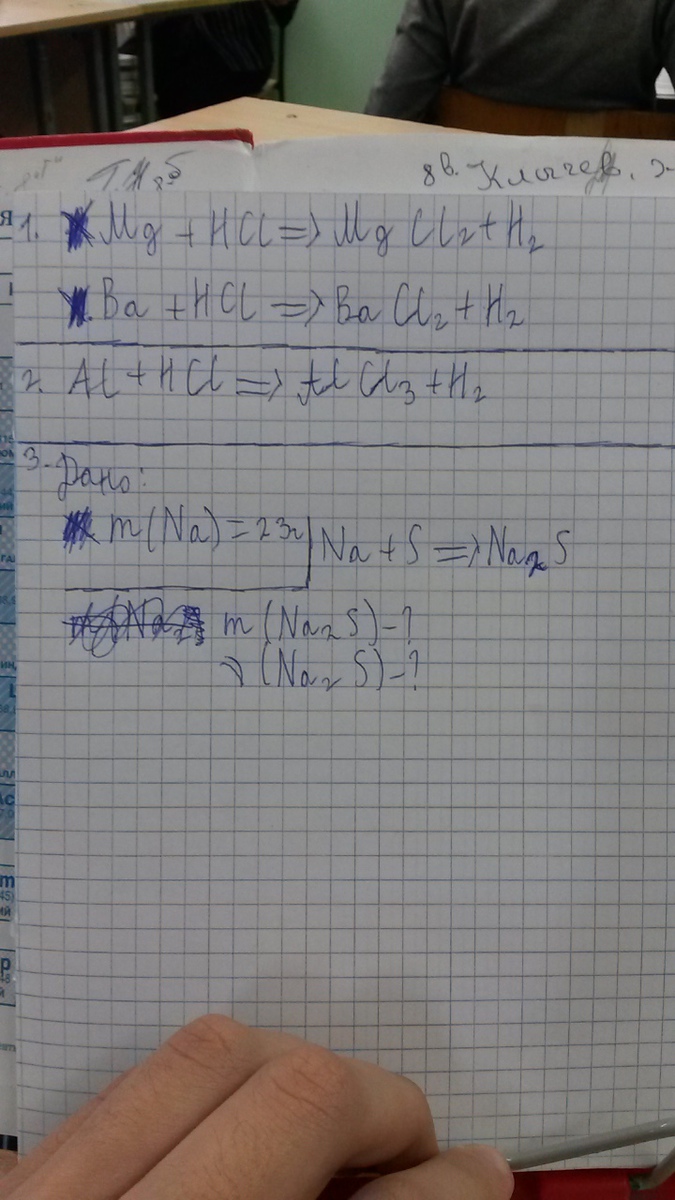 8 в. Клычев.
1. Mg + HCl => MgCl₂ + H₂
Ba + HCl => BaCl₂ + H₂
2. Al + HCl => AlCl₃ + H₂
3. Дано:
m(Na) = 23г Na + S => Na₂S
m(Na₂S) - ?
ν(Na₂S) - ?